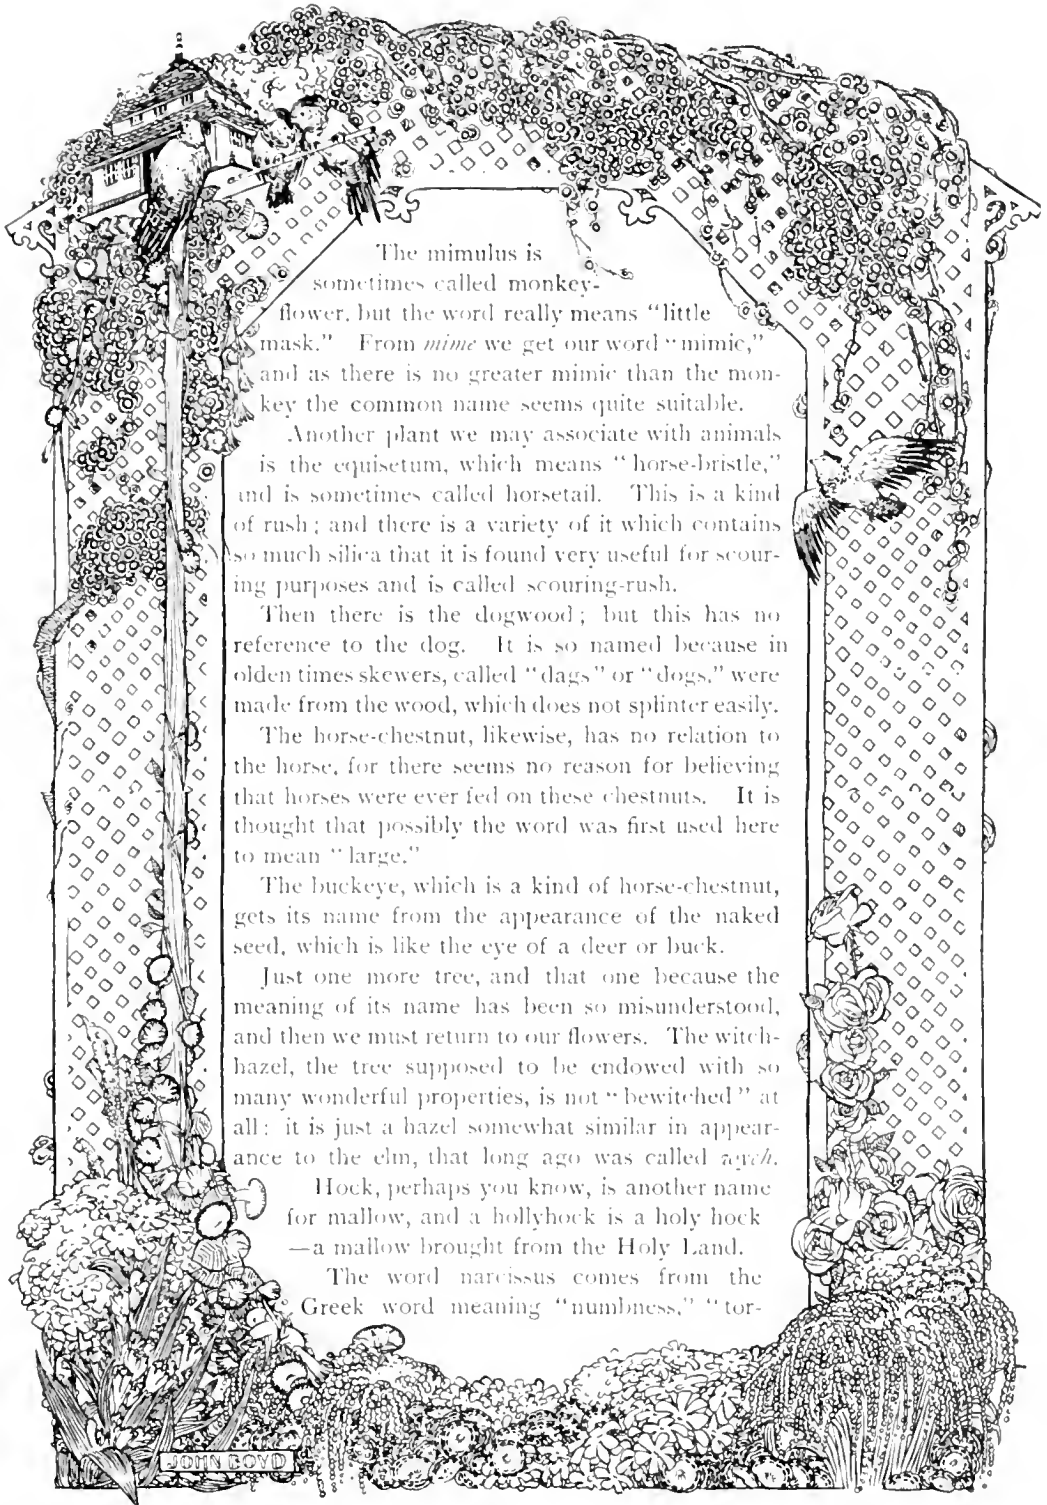 The mimulus is
sometimes called monkey-
flower, but the word really means “little
mask.” From mime we get our word “mimic,”
and as there is no greater mimic than the mon-
key the common name seems quite suitable.
Another plant we may associate with animals
is the equisetum, which means “horse-bristle,”
and is sometimes called horsetail. This is a kind
of rush; and there is a variety of it which contains
so much silica that it is found very useful for scour-
ing purposes and is called scouring-rush.
Then there is the dogwood; but this has no
reference to the dog. It is so named because in
olden times skewers, called “dags” or “dogs,” were
made from the wood, which does not splinter easily.
The horse-chestnut, likewise, has no relation to
the horse, for there seems no reason for believing
that horses were ever fed on these chestnuts. It is
thought that possibly the word was first used here
to mean “large.”
The buckeye, which is a kind of horse-chestnut,
gets its name from the appearance of the naked
seed, which is like the eye of a deer or buck.
Just one more tree, and that one because the
meaning of its name has been so misunderstood,
and then we must return to our flowers. The witch-
hazel, the tree supposed to be endowed with so
many wonderful properties, is not “bewitched” at
all; it is just a hazel somewhat similar in appear-
ance to the elm, that long ago was called wych.
Hock, perhaps you know, is another name
for mallow, and a hollyhock is a holy hock
—a mallow brought from the Holy Land.
The word narcissus comes from the
Greek word meaning “numbness,” “tor-
JOHN BOYD